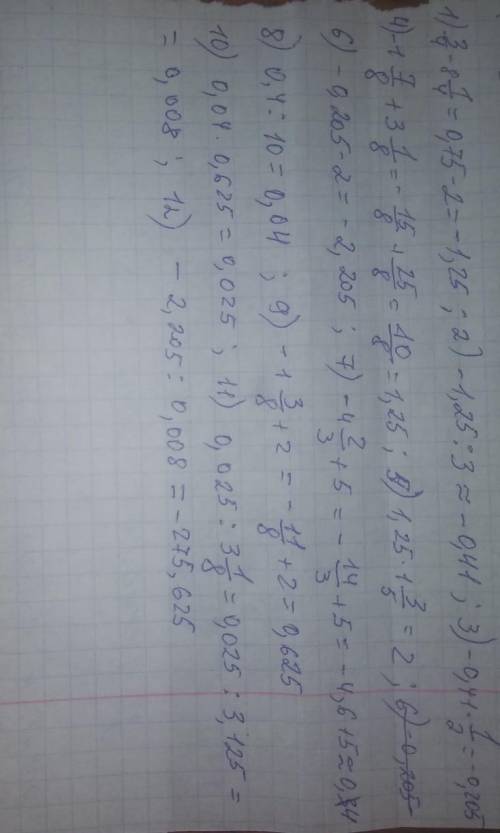 1) 3/4 - 8 1/4 = 0,75 - 2 = -1,25 ; 2) -1,25 : 3 ≈ -0,41 ; 3) -0,41 · 1/2 = -0,205
4) -1 7/8 + 3 1/8 = - 15/8 + 25/8 = 10/8 = 1,25 ; 5) 1,25 · 1 3/5 = 2 ; 6) -0,205
6) - 0,205 - 2 = - 2,205 ; 7) -4 2/3 + 5 = - 14/3 + 5 = -4,6 + 5 = 0,4
8) 0,4 : 10 = 0,04 ; 9) -1 3/8 + 2 = - 11/8 + 2 = 0,625
10) 0,04 · 0,625 = 0,025 ; 11) 0,025 : 3 1/8 = 0,025 : 3,125 =
= 0,008 ; 12) - 2,205 : 0,008 = -275,625